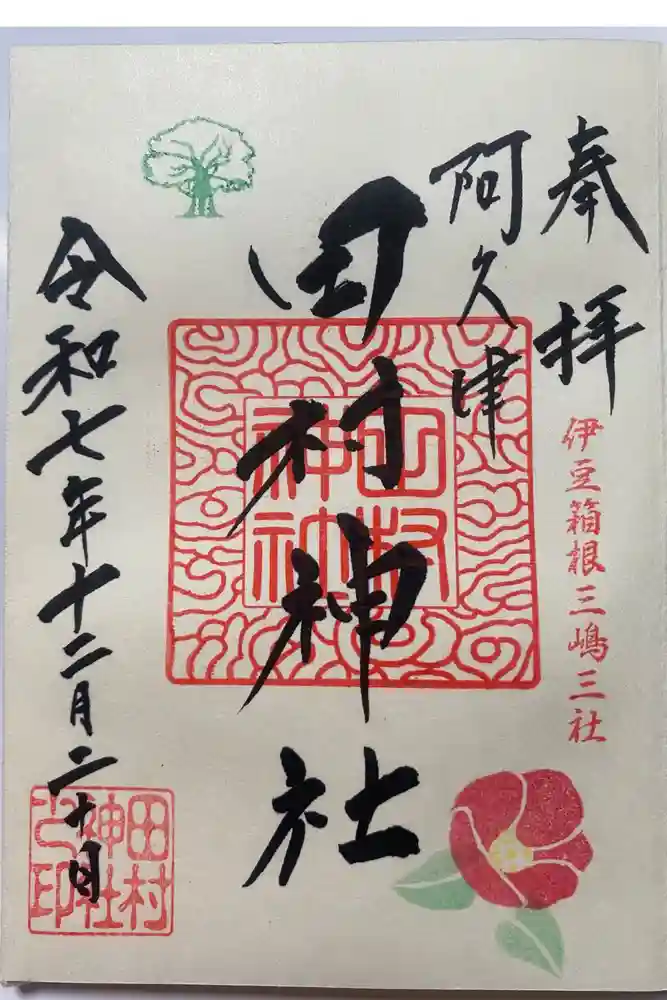 奉拝
伊豆箱根三嶋三社
阿久津
田村神社
田村
神社
令和七年十二月二十日
田村
神社
之印